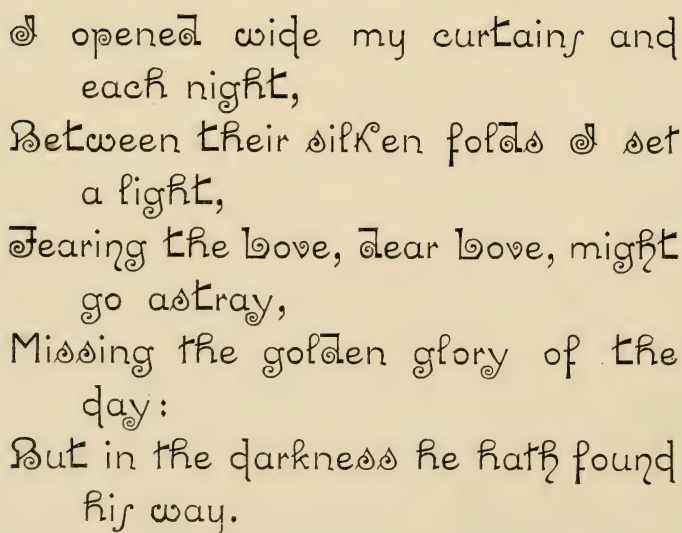 I opened wide my curtains and
each night,
Between their silken folds I set
a light,
Fearing the Love, dear Love, might
go astray,
Missing the golden glory of the
day:
But in the darkness he hath found
his way.